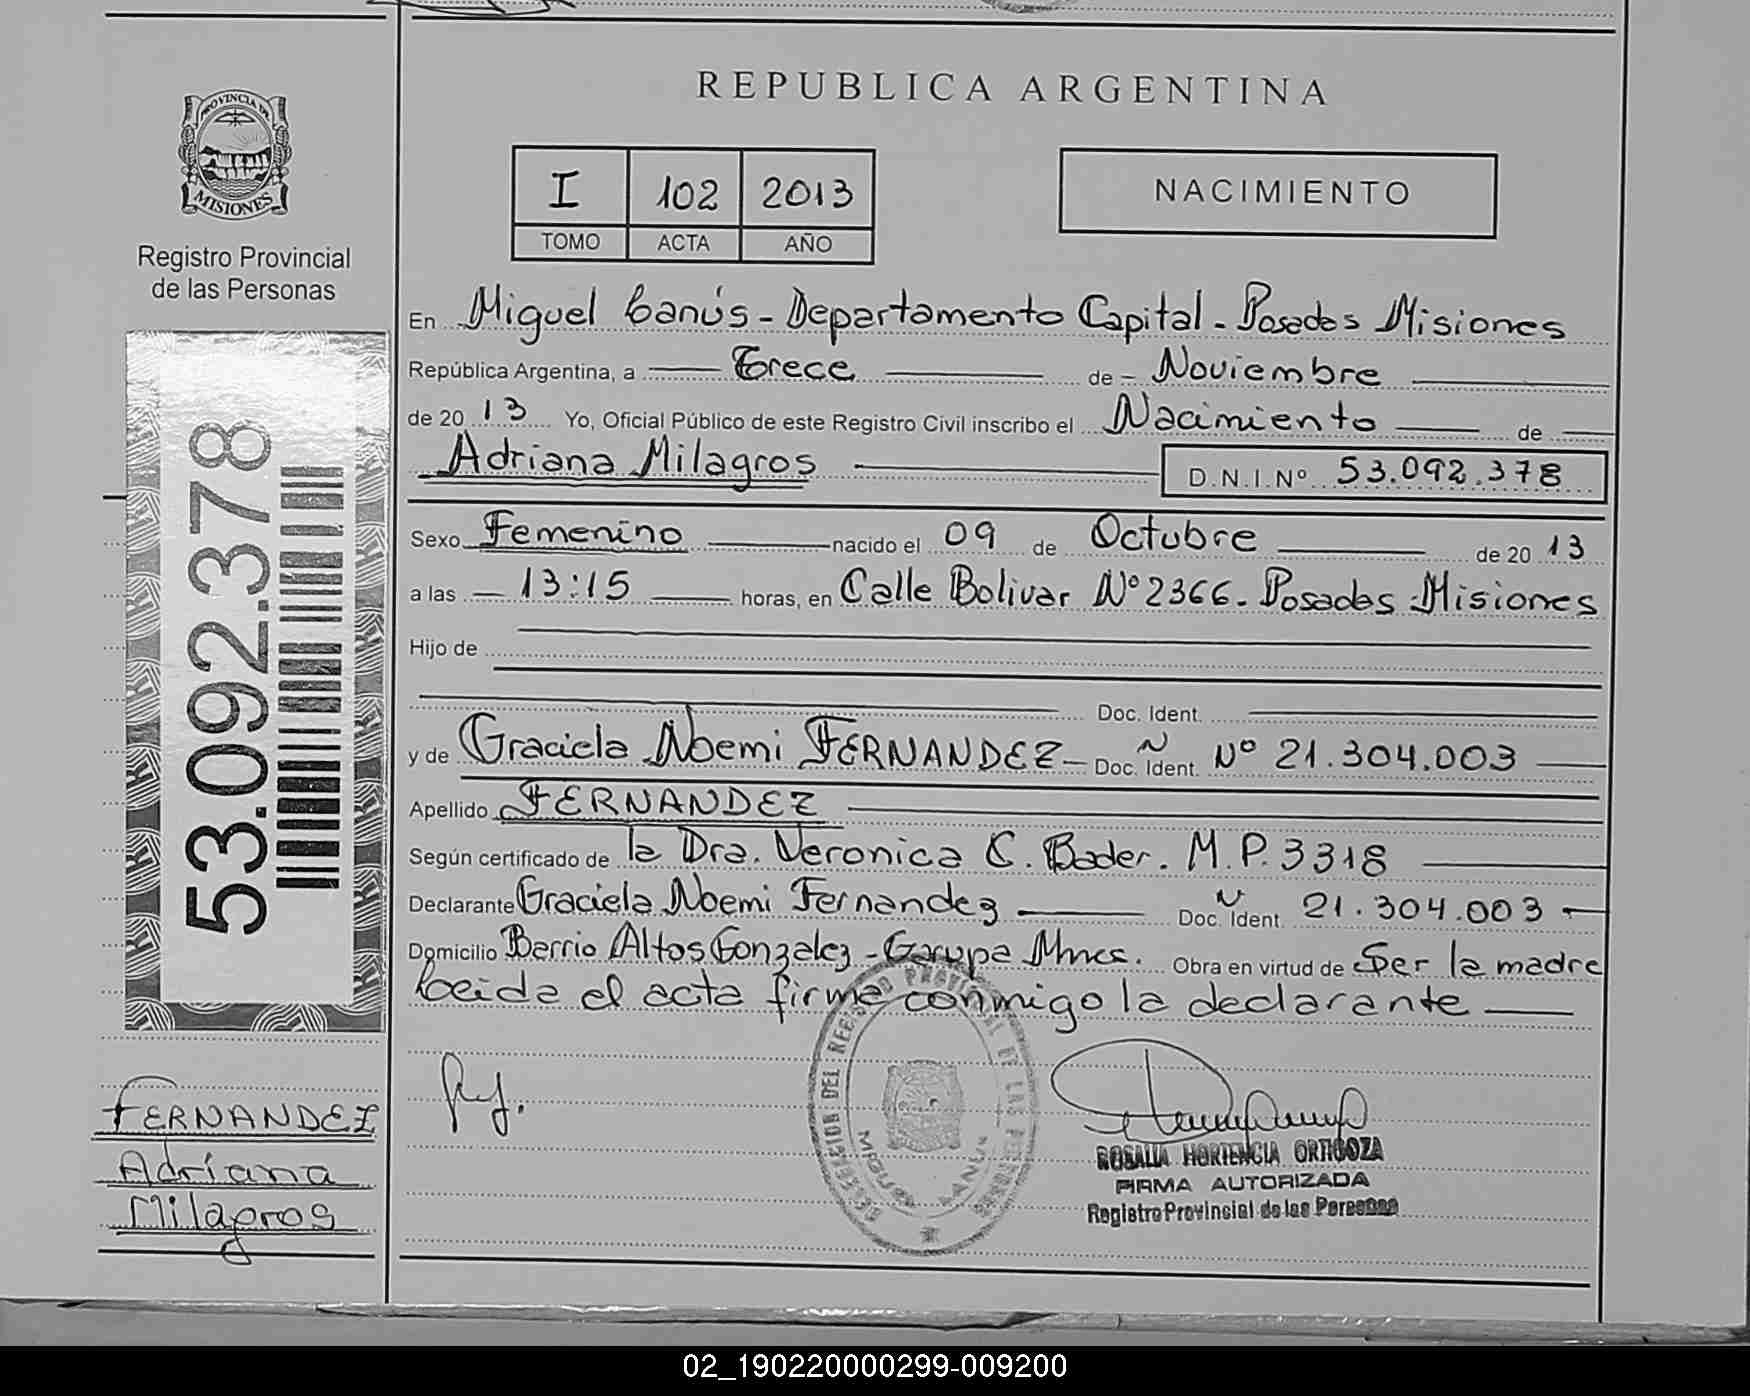 REPUBLICA ARGENTINA
PROVINCIA DE
MISIONES
Registro Provincial
de las Personas
I 102 2013
TOMO ACTA AÑO
NACIMIENTO
53.092.378
En Miguel Lanús - Departamento Capital - Posadas Misiones
República Argentina, a Trece de Noviembre
de 2013 Yo, Oficial Público de este Registro Civil inscribo el Nacimiento de
Adriana Milagros D.N.I.Nº 53.092.378
Sexo Femenino nacido el 09 de Octubre de 2013
a las 13:15 horas, en Calle Bolivar Nº 2366 - Posadas - Misiones
Hijo de
Doc. Ident.
y de Graciela Noemi FERNANDEZ - Doc. Ident. Nº 21.304.003
Apellido FERNANDEZ
Según certificado de la Dra. Veronica C. Bader. M.P. 3318
Declarante Graciela Noemi Fernandez Doc. Ident. 21.304.003
Domicilio Barrio Altos Gonzalez - Garupa Mnes. Obra en virtud de Ser la madre
Leida el acta firma conmigo la declarante
FERNANDEZ
Adriana
Milagros
ROSALIA HORTENCIA ORTIGOZA
FIRMA AUTORIZADA
Registro Provincial de las Personas
02_190220000299-009200